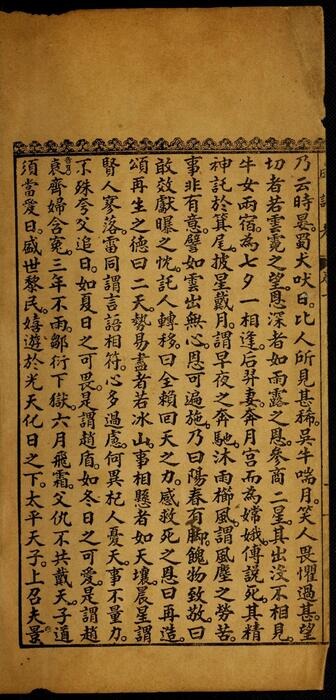 乃云時晏。蜀犬吠日。比人所見甚稀。吳牛喘月。笑人畏懼過甚。望
切者若雲霓之望。恩深者如雨露之恩。參商二星。其出沒不相見。
牛女兩宿。為七夕一相逢。后羿妻奔月宮。而為嫦娥。傅說死。其精
神託於箕尾。披星戴月。謂早夜之奔馳。沐雨櫛風。謂風塵之勞苦。
事非有意。譬如雲出無心。恩可遍施。乃曰陽春有腳。餽物致敬。曰
敢效獻曝之忱。託人轉移。曰全賴回天之力。感救死之恩。曰再造。
頌再生之德。曰二天。勢易盡者若冰山。事相懸者如天壤。晨星謂
賢人寥落。雷同謂言語相符。心多過慮。何異杞人憂天。事不量力。
不殊夸父追日。如夏日之可畏。是謂趙盾。如冬日之可愛。是謂趙
衰。齊婦含冤。三年不雨。鄒衍下獄。六月飛霜。父仇不共戴天。子道
須當愛日。盛世黎民。嬉遊於光天化日之下。太平天子。上召夫景